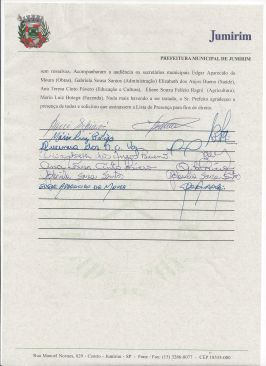 Jumirim
PREFEITURA MUNICIPAL DE JUMIRIM
sem ressalvas. Acompanharam a audiência os secretários municipais Edgar Aparecido de
Moura (Obras), Gabriela Sousa Santos (Administração) Elizabeth dos Anjos Bueno (Saúde),
Ana Teresa Cinto Pinero (Educação e Cultura), Eliane Souza Felício Ragni (Agricultura),
Mario Luiz Ortega (Fazenda). Nada mais havendo a ser tratado, o Sr. Prefeito agradeceu a
presença de todos e solicitou que assinassem a Lista de Presença para fins de direito.
Mario Luiz
dos Anjos Bueno
Ana
Gabriela Sousa Santos
EDGAR APARECIDO DE MOURA
Rua Manoel Novaes, 829 - Centro - Jumirim - SP - Fone / Fax: (15) 3286-8077 - CEP 18535-000